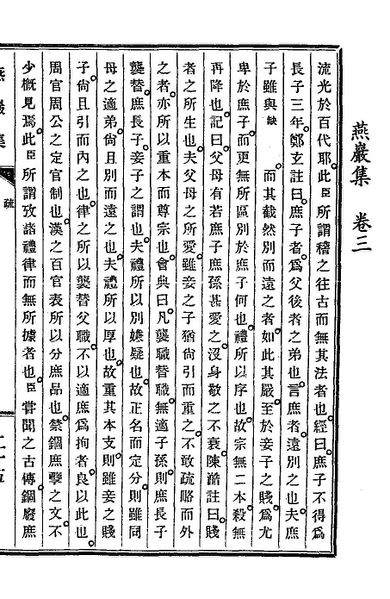 燕巖集 卷三
流光於百代耶此臣所謂稽之往古而無其法者也經曰庶子不得爲
長子三年鄭玄註曰庶子者爲父後者之弟也言庶者遠別之也夫庶
子雖與缺 而其截然別而遠之者如此其嚴至於妾子之賤爲尤
卑於庶子而更無所區別於庶子何也禮所以序也故宗無二本殺無
再降也記曰父母有若庶子庶孫甚愛之沒身敬之不衰陳澔註曰賤
者之所生也夫父母之所愛雖妾之子猶尙引而重之不敢疏略而外
之者亦所以重本而尊宗也會典曰凡襲職替職無適子孫則庶長子
襲替庶長子妾子之謂也夫禮所以別嫌疑也故正名而定分則雖同
母之適弟尙且別而遠之也夫禮所以厚也故重其本支則雖妾之賤
子尙且引而內之也律之所以襲替父職不以適庶爲拘者良以此也
周官周公之定官制也漢之百官表所以分庶品也禁錮庶孽之文不
少槪見焉此臣所謂攷諸禮律而無所據者也臣嘗聞之古傳錮廢庶
燕巖集 疏 二十五